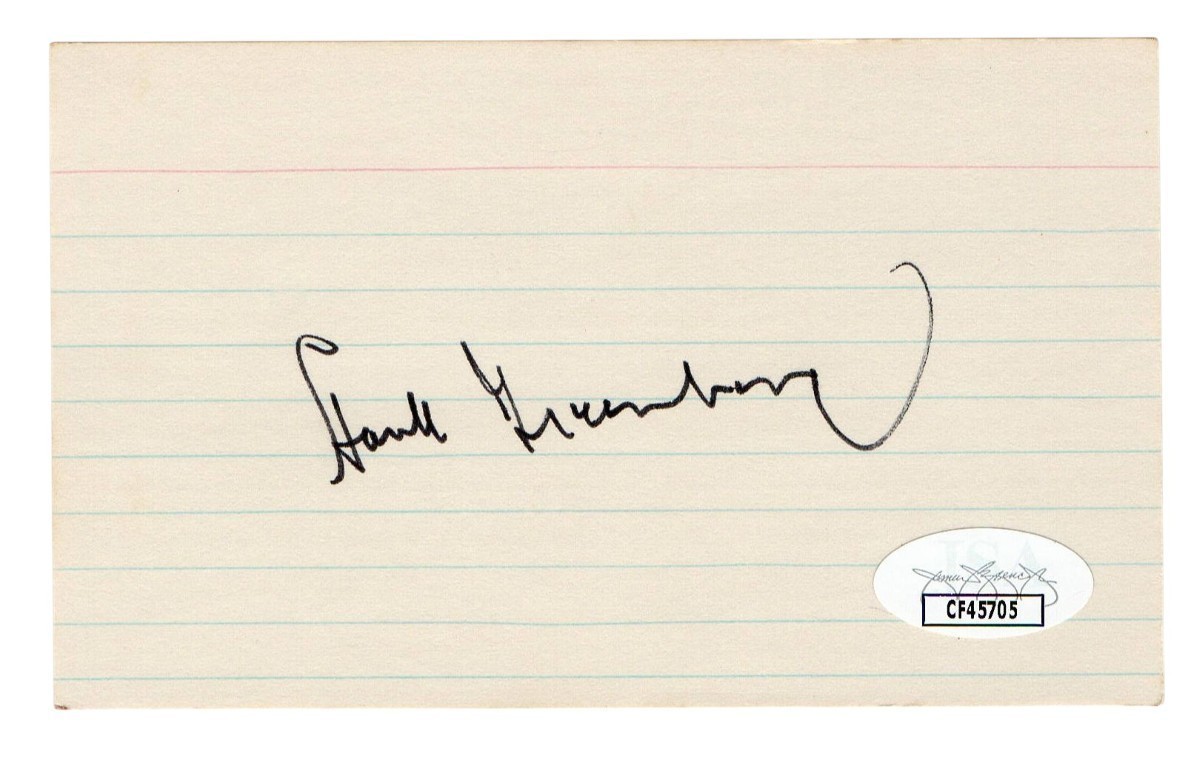 Hank Greenberg
JSA
James Spence Jr.
CF45705